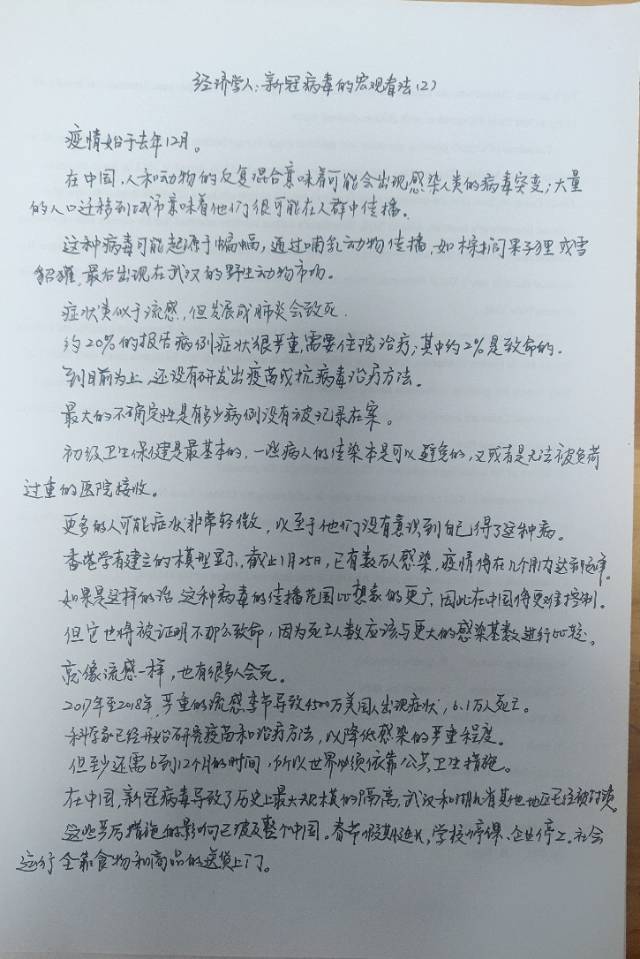 经济学人:新冠病毒的宏观看法(2)
疫情始于去年12月。
在中国,人和动物的反复混合意味着可能会出现感染人类的病毒突变;大量
的人口迁移到城市意味着他们很可能在人群中传播。
这种病毒可能起源于蝙蝠,通过哺乳动物传播,如棕榈果子狸或雪
貂獾,最后出现在武汉的野生动物市场。
症状类似于流感,但发展成肺炎会致死.
约20%的报告病例症状很严重,需要住院治疗;其中约2%是致命的.
到目前为止,还没有研发出疫苗或抗病毒治疗方法。
最大的不确定性是有多少病例没有被记录在案。
初级卫生保健是最基本的,一些病人的传染本是可以避免的,又或者是无法被负荷
过重的医院接收。
更多的人可能症状非常轻微,以至于他们没有意识到自己得了这种病。
香港学者建立的模型显示,截止1月25日,已有数万人感染,疫情将在几个月内达到高峰.
如果是这样的话,这种病毒的传播范围比想象的更广,因此在中国将更难控制.
但它也将被证明不那么致命,因为死亡人数应该与更大的感染基数进行比较。
就像流感一样,也有很多人会死。
2017年至2018年,严重的流感季节导致4500万美国人出现症状,6.1万人死亡。
科学家已经开始研究疫苗和治疗方法,以降低感染的严重程度。
但至少还需6到12个月的时间,所以世界必须依靠公共卫生措施。
在中国,新冠病毒导致了历史上最大规模的隔离,武汉和湖北省其他地区已经被封锁
这些严厉措施的影响已波及整个中国。春节假期延长,学校停课、企业停工.社会
运行全靠食物和商品的送货上门。